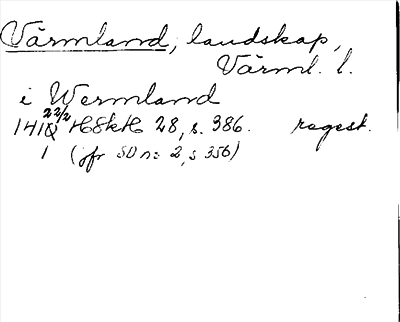 Värmland, landskap,
Värml. l.
i Wermland
22/2
1410 HSkH 28, s. 386. regest.
1 (jfr SD ns 2, s 356)